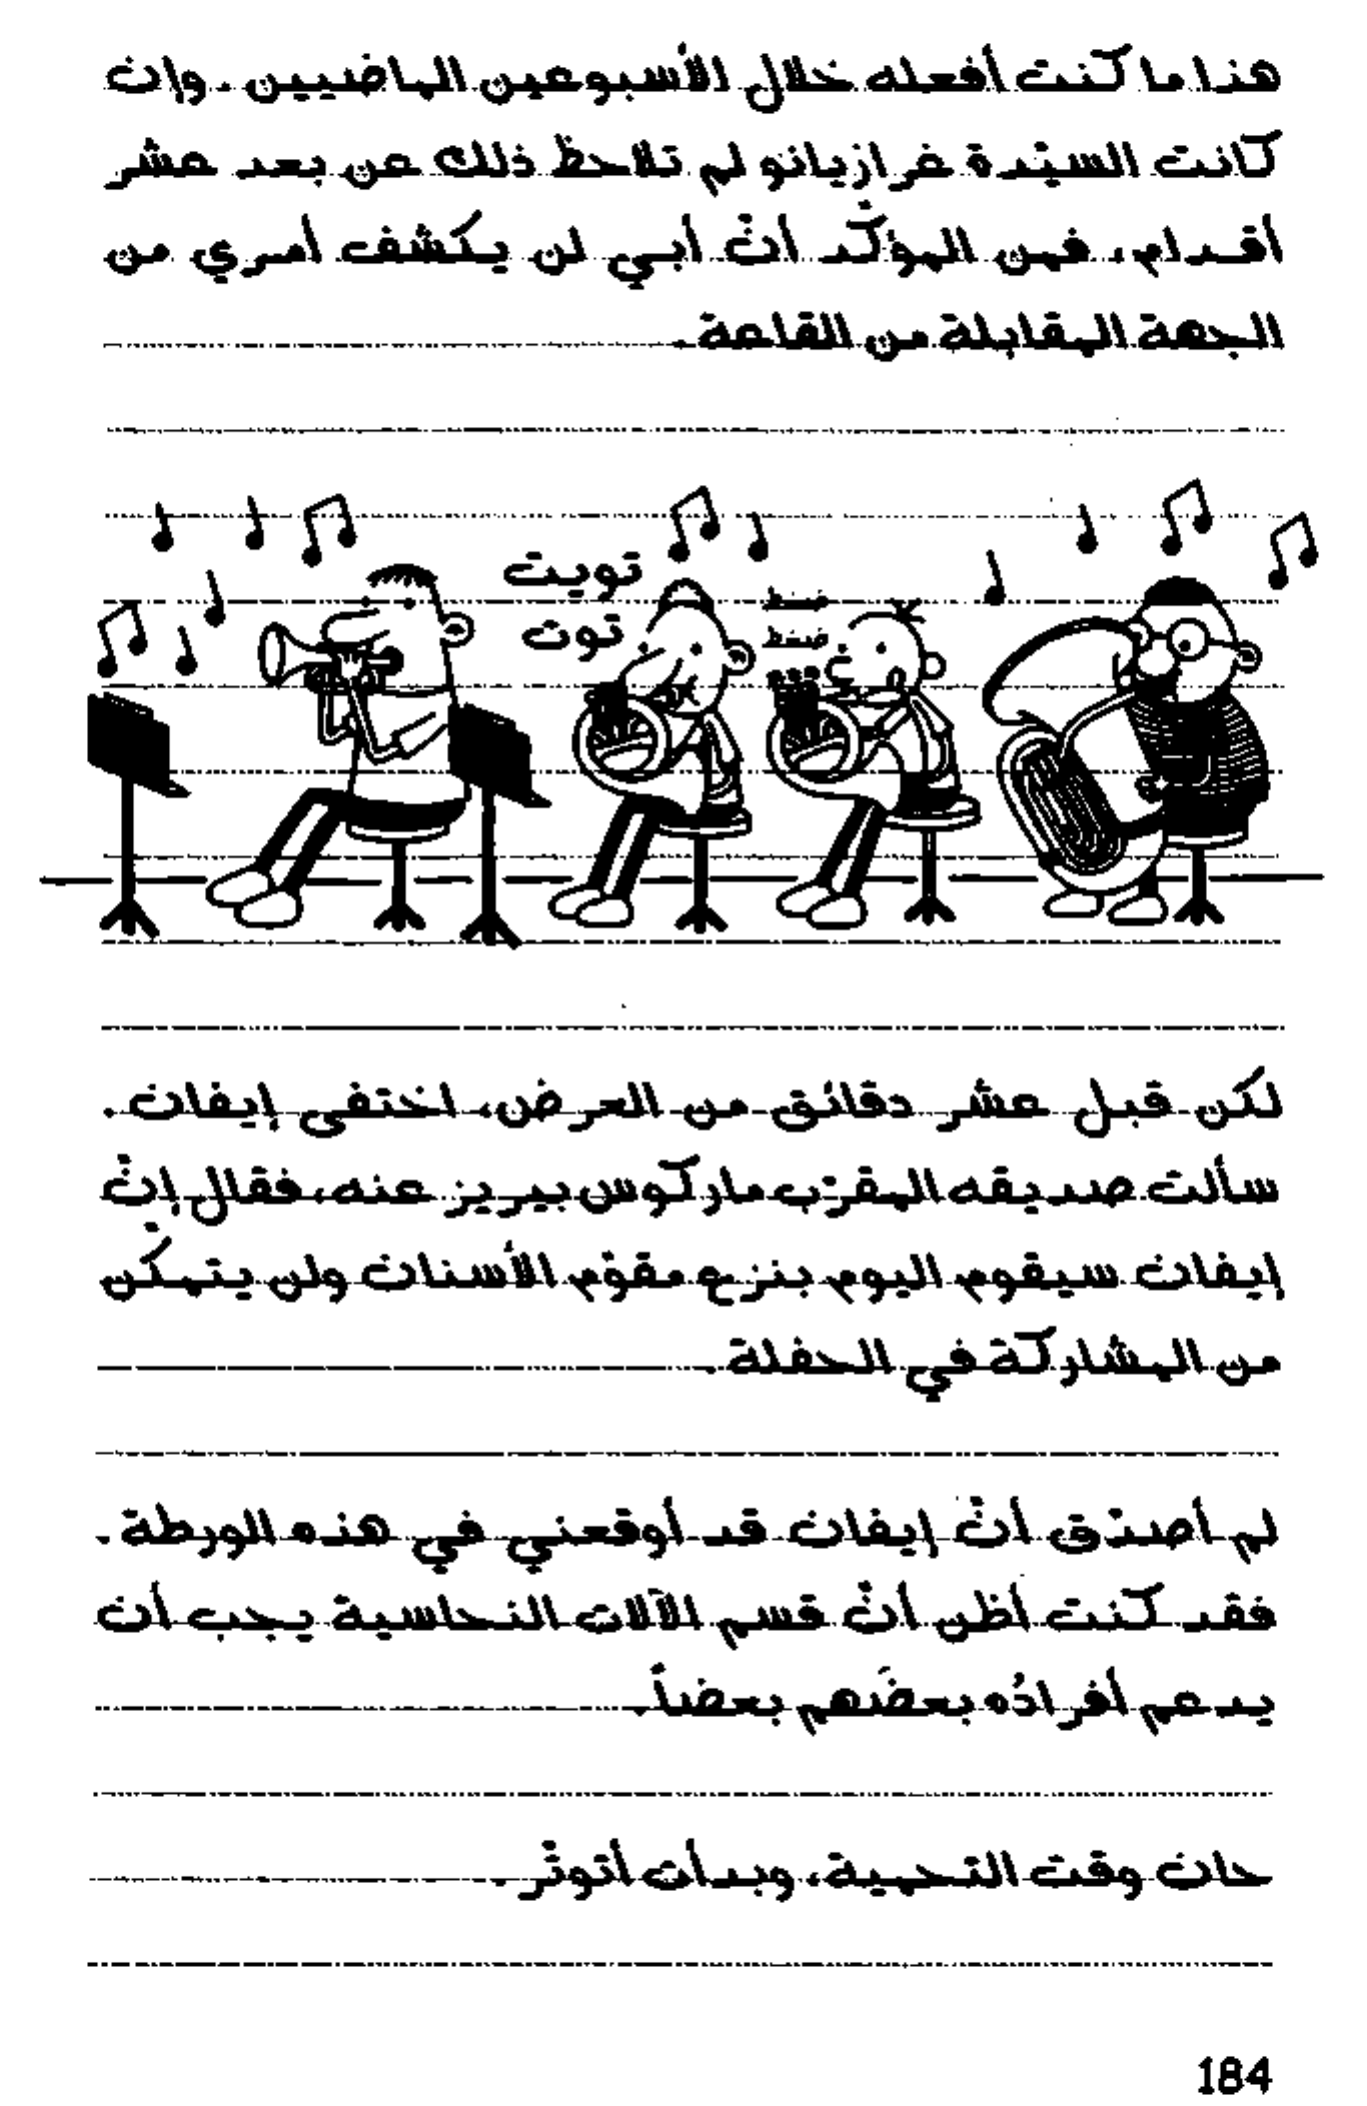 هذا ما كنت أفعله خلال الأسبوعين الماضيين. وإن
كانت السيّدة غرازيانو لم تلاحظ ذلك عن بعد عشر
أقدام، فمن المؤكّد أنّ أبي لن يكشف أمري من
الجهة المقابلة من القاعة.
تويت
توت
ضغط
ضغط
لكن قبل عشر دقائق من العرض، اختفى إيفان.
سألت صديقه المقرّب ماركوس بيريز عنه، فقال إنّ
إيفان سيقوم اليوم بنزع مقوّم الأسنان ولن يتمكّن
من المشاركة في الحفلة.
لم أصدّق أنّ إيفان قد أوقعني في هذه الورطة.
فقد كنت أظن أنّ قسم الآلات النحاسية يجب أن
يدعم أفرادُه بعضَهم بعضاً.
حان وقت التحمية، وبدأت أتوتّر.
184